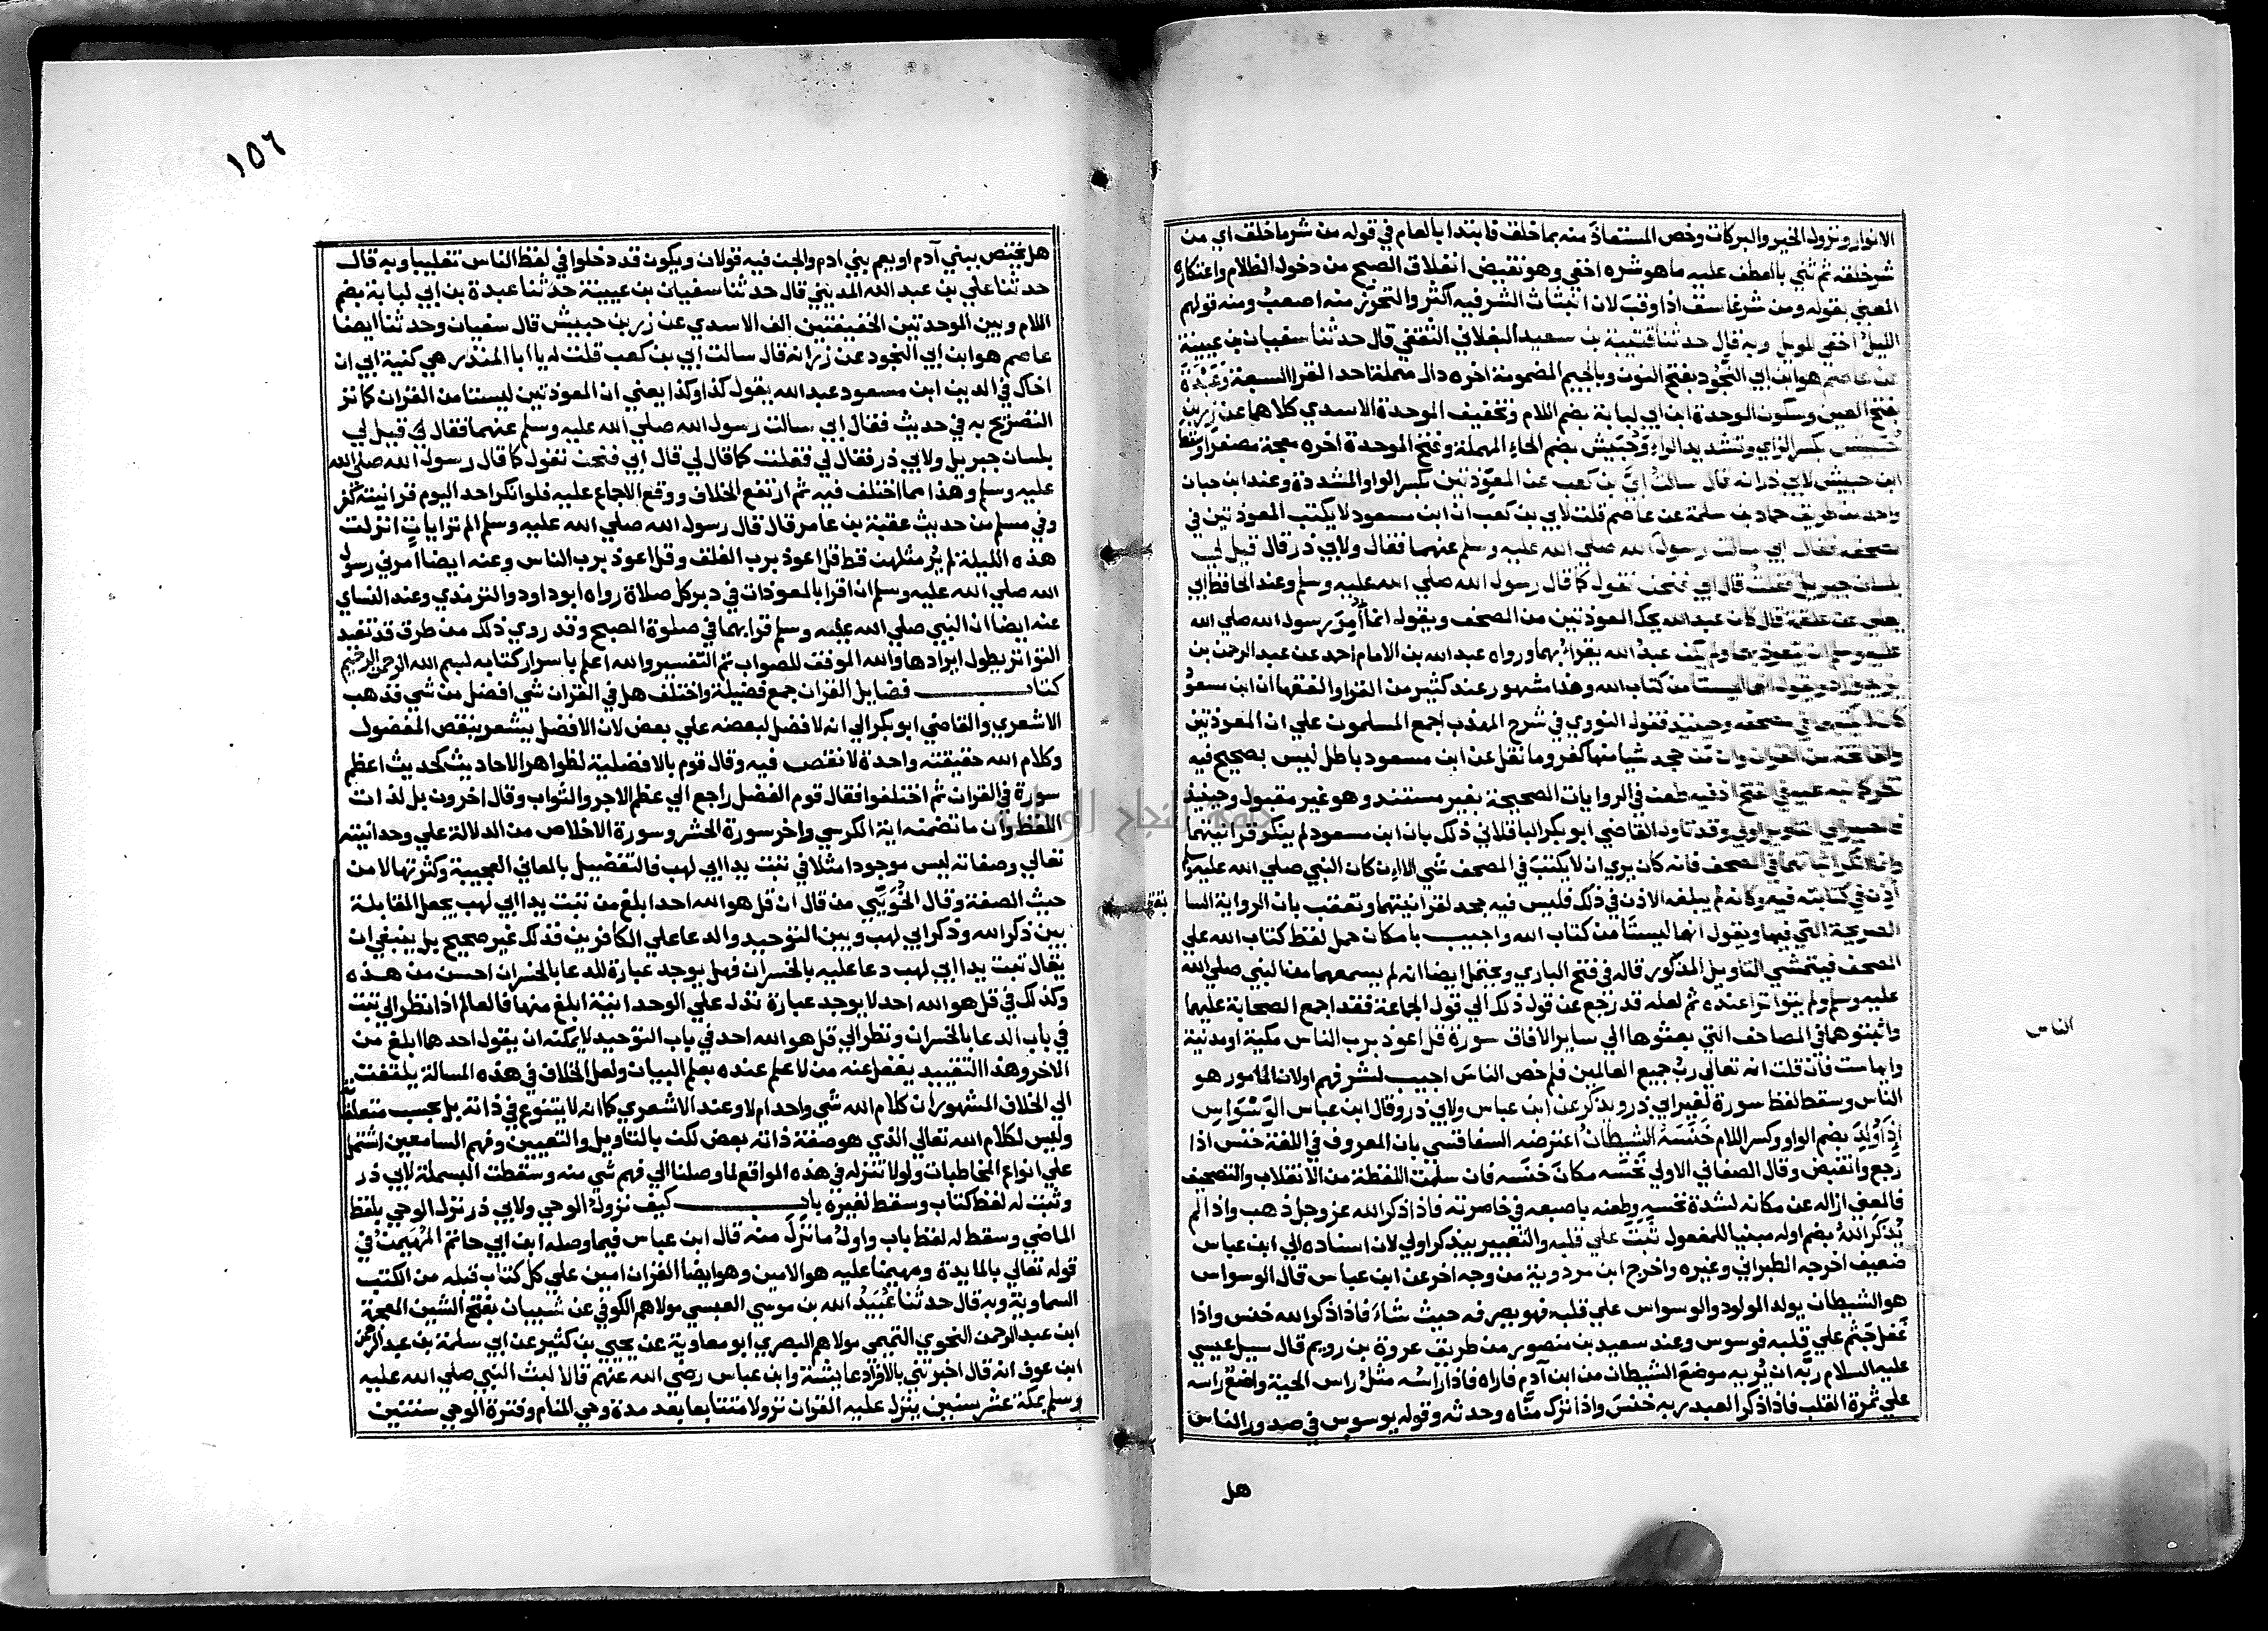 الانوار ونزول الخير والبركات وخص المستعاذ منه بما خلق فابتدا بالعام في قوله من شر ما خلق اي من
شر خلقه ثم ثني بالعطف عليه ما هو شره اخفي وهو نقيض انفلاق الصبح من دخول الظلام واعتكاره
المعني بقوله ومن شر غاسق اذا وقب لان انبثاث الشر فيه اكثر والتحرز منه اصعب ومنه قولهم
الليل اخفي للويل وبه قال حدثنا قتيبة بن سعيد البغلاني الثقفي قال حدثنا سفيان بن عيينة
عن عاصم هو ابن ابي النجود بفتح النون وبالجيم المضمومة اخره دال مهملة احد القرا السبعة وعبدة
بفتح العين وسكون الوحدة ابن ابي لبابة بضم اللام وتخفيف الموحدة الاسدي كلاهما عن زر بن
حبيش بكسر الزاي وتشديد الراء وحبيش بضم الحاء المهملة وفتح الموحدة اخره معجمة مصغرا وسقط
ابن حبيش لابي ذر انه قال سالت ابي بن كعب عن المعوذتين بكسر الواو المشددة وعند ابن حبان
واحمد من طريق حماد بن سلمة عن عاصم قلت لابي بن كعب ان ابن مسعود لا يكتب المعوذتين في
مصحفه فقال اني سالت رسول الله صلي الله عليه وسلم عنهما فقال ولابي ذر قال قيل لي
بلسان جبريل فقلت قال ابي فنحن نقول كما قال رسول الله صلي الله عليه وسلم وعند الحافظ ابي
يعلي عن علقمة قال كان عبد الله يحك المعوذتين من المصحف ويقول انما امر رسول الله صلي الله
عليه وسلم ان يتعوذ بهما ولم يكن عبد الله يقرا بهما ورواه عبد الله بن الامام احمد عن عبد الرحمن بن
يزيد وزاد ويقول انهما ليستا من كتاب الله وهذا مشهور عند كثير من القرا والفقها ان ابن مسعود
كان لا يكتبهما في مصحفه وحينئذ فقول النووي في شرح المهذب اجمع المسلمون علي ان المعوذتين
والفاتحة من القران وان من جحد شيا منها كفر وما نقل عن ابن مسعود باطل ليس بصحيح فيه
نظر كما نبه عليه في فتح اذ فيه طعن في الروايات الصحيحة بغير مستند وهو غير مقبول وحينئذ
فالمصير الي التاويل اولي وقد تاول القاضي ابو بكر الباقلاني ذلك بان ابن مسعود لم ينكر قرانيتهما
وانما انكر اثباتهما في المصحف فانه كان يري ان لا يكتب في المصحف شي الا ان كان النبي صلي الله عليه وسلم
اذن في كتابته فيه وكانه لم يبلغه الاذن في ذلك فليس فيه جحد لقرانيتهما وتعقب بان الرواية السابقة
الصريحة التي فيها ويقول انهما ليستا من كتاب الله واجيب بامكان حمل لفظ كتاب الله علي
المصحف فيتمشي التاويل المذكور قاله في فتح الباري ويحتمل ايضا انه لم يسمعهما من النبي صلي الله
عليه وسلم ولم يتواترا عنده ثم لعله قد رجع عن قوله ذلك الي قول الجماعة فقد اجمع الصحابة عليهما
واثبتوهما في المصاحف التي بعثوها الي ساير الافاق سورة قل اعوذ برب الناس مكية او مدنية
وايها ست فان قلت انه تعالي رب جميع العالمين فلم خص الناس اجيب لشرفهم او لان المامور هو
الناس وسقط لفظ سورة لغير ابي ذر ويذكر عن ابن عباس ولابي ذر وقال ابن عباس الوسواس
اذا ولد بضم الواو وكسر اللام خنسه الشيطان اعترضه السفاقسي بان المعروف في اللغة خنس اذا
رجع وانقبض وقال الصغاني الاولي نخسه مكان خنسه فان سلمت اللفظة من الانقلاب والتصحيف
فالمعني ازاله عن مكانه لشدة نخسه وطعنه باصبعه في خاصرته فاذا ذكر الله عز وجل ذهب واذا لم
يذكر الله بضم اوله مبنيا للمفعول ثبت علي قلبه والتعبير بيذكر اولي لان اسناده الي ابن عباس
ضعيف اخرجه الطبراني وغيره واخرج ابن مردوية من وجه اخر عن ابن عباس قال الوسواس
هو الشيطان يولد المولود والوسواس علي قلبه فهو يصرفه حيث شاء فاذا ذكر الله خنس واذا
غفل جثم علي قلبه فوسوس وعند سعيد بن منصور من طريق عروة بن رويم قال سيل عيسي
عليه السلام ربه ان يريه موضع الشيطان من ابن آدم فاراه فاذا راسه مثل راس الحية واضع راسه
علي ثمرة القلب فاذا ذكر العبد ربه خنس واذا ترك مناه وحدثه وقوله يوسوس في صدور الناس
الناس
هل
١٥٦
هل يختص ببني آدم او يعم بني ادم والجن فيه قولان ويكون قد دخلوا في لفظ الناس تغليبا وبه قال
حدثنا علي بن عبد الله المديني قال حدثنا سفيان بن عيينة حدثنا عبدة بن ابي لبابة بضم
اللام وبين الموحدتين الخفيفتين الف الاسدي عن زر بن حبيش قال سفيان وحدثنا ايضا
عاصم هو ابن ابي النجود عن زر انه قال سالت ابي بن كعب قلت له يا ابا المنذر هي كنية ابي ان
اخاك في الدين ابن مسعود عبد الله يقول كذا وكذا يعني ان المعوذتين ليستا من القران كما مر
التصريح به في حديث فقال ابي سالت رسول الله صلي الله عليه وسلم عنهما فقال لي قيل لي
بلسان جبريل ولابي ذر فقال لي فقلت كما قال لي قال ابي فنحن نقول كما قال رسول الله صلي الله
عليه وسلم وهذا مما اختلف فيه ثم ارتفع الخلاف ووقع الاجماع عليه فلو انكر احد اليوم قرانيته كفر
وفي مسلم من حديث عقبة بن عامر قال قال رسول الله صلي الله عليه وسلم الم تر ايات انزلت
هذه الليلة لم ير مثلهن قط قل اعوذ برب الفلق وقل اعوذ برب الناس وعنه ايضا امرني رسول
الله صلي الله عليه وسلم ان اقرا بالمعوذات في دبر كل صلاة رواه ابو داود والترمذي وعند النساي
عنه ايضا ان النبي صلي الله عليه وسلم قرا بهما في صلوة الصبح وقد روي ذلك من طرق قد تفيد
التواتر يطول ايرادها والله الموفق للصواب تم التفسير والله اعلم باسرار كتابه بسم الله الرحمن الرحيم
كتاب فضايل القران جمع فضيلة واختلف هل في القران شي افضل من شي فذهب
الاشعري والقاضي ابو بكر الي انه لا فضل لبعضه علي بعض لان الافضل يشعر بنقص المفضول
وكلام الله حقيقته واحدة لا نقص فيه وقال قوم بالافضلية لظواهر الاحاديث كحديث اعظم
سورة في القران ثم اختلفوا فقال قوم الفضل راجع الي عظم الاجر والثواب وقال اخرون بل لذات
اللفظ وان ما تضمنه اية الكرسي واخر سورة الحشر وسورة الاخلاص من الدلالة علي وحدانيته
تعالي وصفاته ليس موجودا مثلا في تبت يدا ابي لهب فالتفضيل بالمعاني العجيبة وكثرتها لا من
حيث الصفة وقال الخويي من قال ان قل هو الله احد ابلغ من تبت يدا ابي لهب يجعل المقابلة
بين ذكر الله وذكر ابي لهب وبين التوحيد والدعا علي الكافرين فذلك غير صحيح بل ينبغي ان
يقال تبت يدا ابي لهب دعا عليه بالخسران فهل يوجد عبارة للدعا بالخسران احسن من هذه
وكذلك في قل هو الله احد لا يوجد عبارة تدل علي الوحدانية ابلغ منها فالعالم اذا نظر الي تبت
في باب الدعا بالخسران ونظر الي قل هو الله احد في باب التوحيد لا يمكنه ان يقول احدهما ابلغ من
الاخر وهذا التقييد يغفل عنه من لا علم عنده بعلم البيان ولعل الخلاف في هذه المسالة يلتفت
الي الخلاف المشهور ان كلام الله شي واحد ام لا وعند الاشعري كما انه لا يتنوع في ذاته بل بحسب متعلقاته
وليس لكلام الله تعالي الذي هو صفة ذاته بعض لكن بالتاويل والتعيين وفهم السامعين اشتمل
علي انواع المخاطبات ولولا تنزله في هذه المواقع لما وصلنا الي فهم شي منه وسقطت البسملة لابي ذر
وثبت له لفظ كتاب وسقط لغيره باب كيف نزول الوحي ولابي ذر نزل الوحي بلفظ
الماضي وسقط له لفظ باب واول ما نزل منه قال ابن عباس فيما وصله ابن ابي حاتم المهيمن في
قوله تعالي بالمايدة ومهيمنا عليه هو الامين وهو ايضا القران امين علي كل كتاب قبله من الكتب
السماوية وبه قال حدثنا عبيد الله بن موسي العبسي مولاهم الكوفي عن شيبان بفتح الشين المعجمة
ابن عبد الرحمن النحوي التميمي مولاهم البصري ابو معاوية عن يحيي بن كثير عن ابي سلمة بن عبد الرحمن
ابن عوف انه قال اخبرتني بالافراد عايشة وابن عباس رضي الله عنهم قالا لبث النبي صلي الله عليه
وسلم بمكة عشر سنين ينزل عليه القران نزولا متتابعا بعد مدة وحي المنام وفترة الوحي سنتين